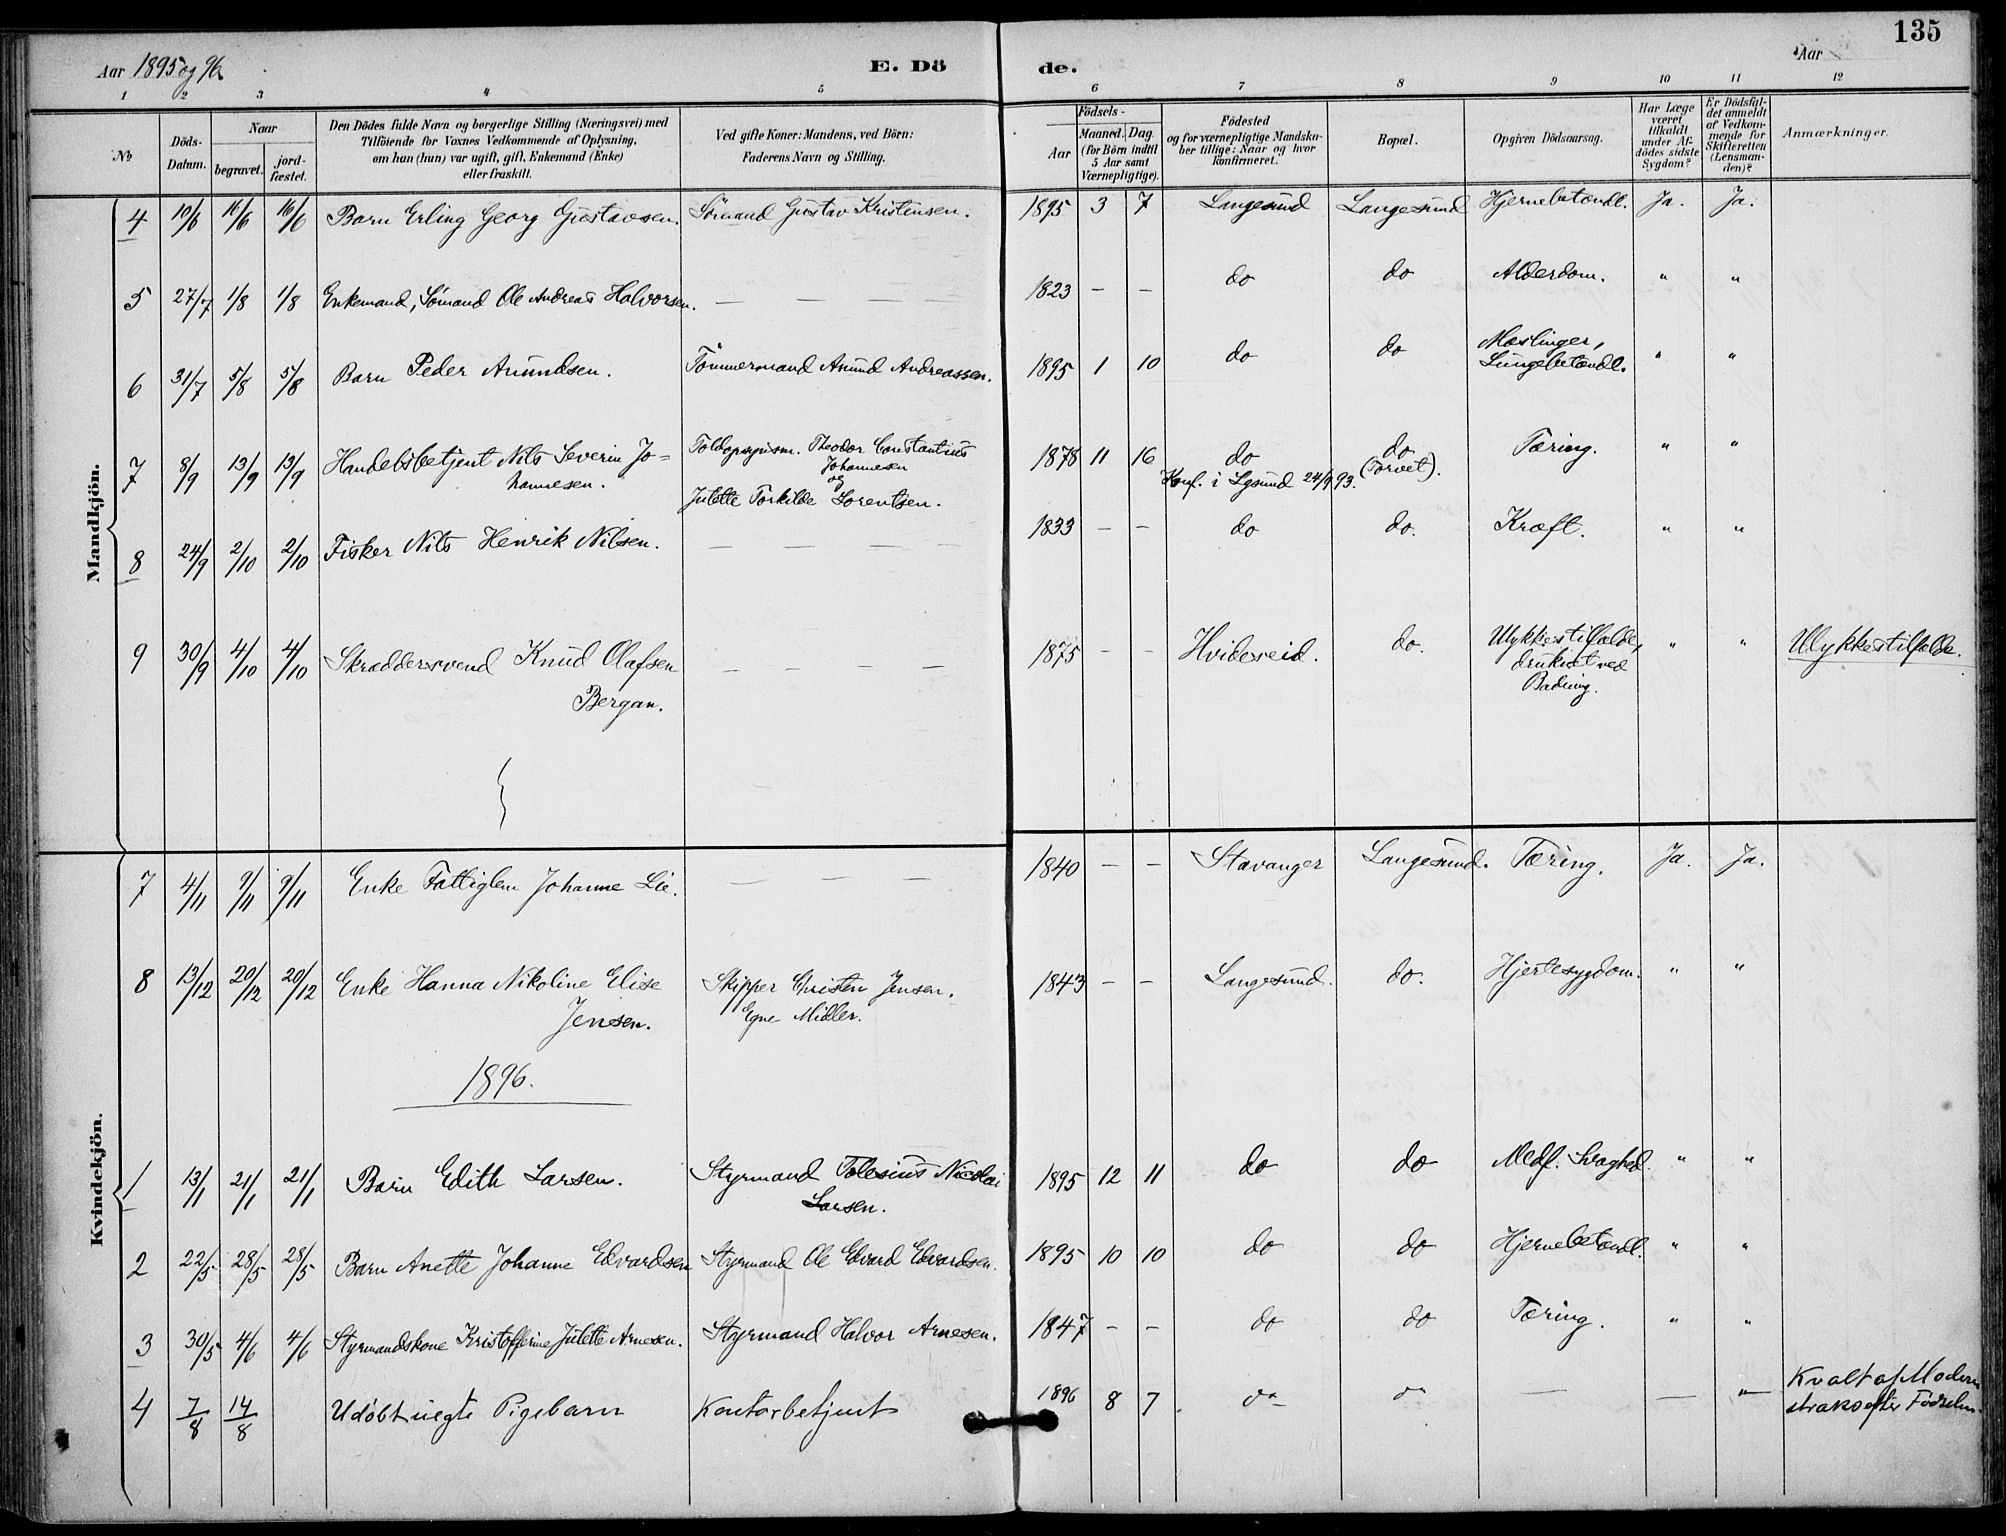 135
Aar 1895 og 96
E. Döde.
Aar
1 2 3 4 5 6 7 8 9 10 11 12
No
Döds-Datum.
Naar
begravet.
jord-fæstet.
Den Dödes fulde Navn og borgerlige Stilling (Næringsvei) med
Tilföiende for Voxnes Vedkommende af Oplysning,
om han (hun) var ugift, gift, Enkemand (Enke)
eller fraskilt.
Ved gifte Koner: Mandens, ved Börn:
Faderens Navn og Stilling.
Födsels-
Aar
Maaned. Dag
(for Börn indtil
5 Aar samt
Værnepligtige).
Födested
og for værnepligtige Mandska-
ber tillige: Naar og hvor
konfirmeret.
Bopæl.
Opgiven Dödsaarsag.
Har Læge
været
tilkaldt
under Af-
dödes sidste
Sygdom?
Er Dödsfal-
det anmeldt
af Vedkom-
mende for
Skifteretten
(Lensman-
den)?
Anmærkninger.
Mandkjön.
4 10/6 16/6 16/6 Barn Erling Georg Gustavsen. Sömand Gustav Kristensen. 1895 3 7 Langesund Langesund Hjernebetændl. Ja. Ja.
5 27/7 1/8 1/8 Enkemand, Sömand Ole Andreas Halvorsen. — — 1823 — — do do Alderdom. " "
6 31/7 5/8 5/8 Barn Peder Amundsen. Tömmermand Amund Andreassen. 1895 1 10 do do Mæslinger,
Lungebetændl. " "
7 8/9 13/9 13/9 Handelsbetjent Nils Severin Jo=
hannesen. Toldopsynsm. Theodor Constantius
Johannesen
og
Julette Torkilde Lorentsen. 1878 11 16 do
Konf. i Lgsund 24/9 93. do
(Torvet). Tæring. " "
8 24/9 2/10 2/10 Fisker Nils Henrik Nilsen. — — — — 1833 — — do do. Kræft. " "
9 30/9 4/10 4/10 Skræddersvend Knud Olafsen
Bergan. — — — — 1875 — — Hvideseid. do. Ulykkestilfælde,
druknet ved
Badning. " " Ulykkestilfælde.
Kvindekjön.
7 4/11 9/11 9/11 Enke Fattiglem Johanne Lie. — — — 1840 — — Stavanger Langesund. Tæring. Ja. Ja.
8 13/12 20/12 20/12 Enke Hanna Nikoline Elise
Jensen. Skipper Christen Jensen.
Egne Midler. 1843 — — Langesund. do. Hjertesygdom. " "
1896.
1 13/1 21/1 21/1 Barn Edith Larsen. Styrmand Tolesius Nicolai
Larsen. 1895 12 11 do do Medf. Svaghed. " "
2 22/5 28/5 28/5 Barn Anette Johanne Edvardsen Styrmand Ole Edvard Edvardsen. 1895 10 10 do do Hjernebetændl. " "
3 30/5 4/6 4/6 Styrmandskone Kristofferine Julette Arnesen. Styrmand Halvor Arnesen. 1847 — — do do Tæring. " "
4 7/8 14/8 Udöbt uegte Pigebarn Kontorbetjent 1896 8 7 do do — — " — Kvalt af Moderen
straks efter Födselen.